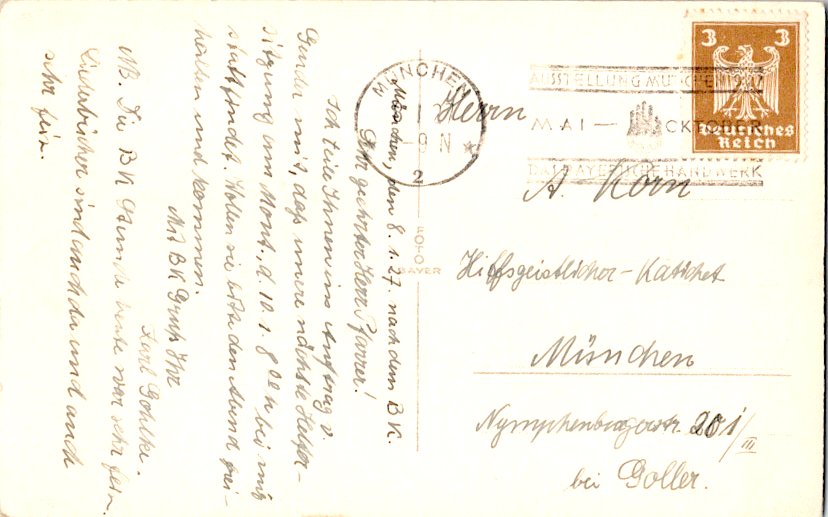 München, den 8.1.27. nach dem B.K.
Sehr geehrter Herr Pfarrer!
Ich teile Ihnen im Auftrag v.
Gunda mit, daß unsere nächste Helfer-
sitzung am Mont., d. 10.1. 8 bei mir
stattfindet. Wollen sie bitte den Abend frei-
halten und kommen.
Mit BK Gruß Ihr
Karl Gohlke.
NB. Die BK Stunde heute war sehr fein.
Liederbücher sind auch da und auch
sehr fein.
MÜNCHEN
1
8-9 N
2
AUSSTELLUNG MÜNCHEN 1927
MAI — OCKTOBER
DAS BAYERISCHE HANDWERK
3 3
Deutsches
Reich
FOTO
BAYER
Herrn
A. Korn
Hilfsgeistlicher - Katechet
München
Nymphenburgerstr. 201/III
bei Goller.